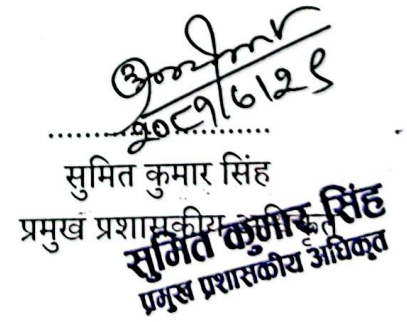 २०८१/६/२९
....................
सुमित कुमार सिंह
प्रमुख प्रशासकीय अधिकृत
सुमित कुमार सिंह
प्रमुख प्रशासकीय अधिकृत